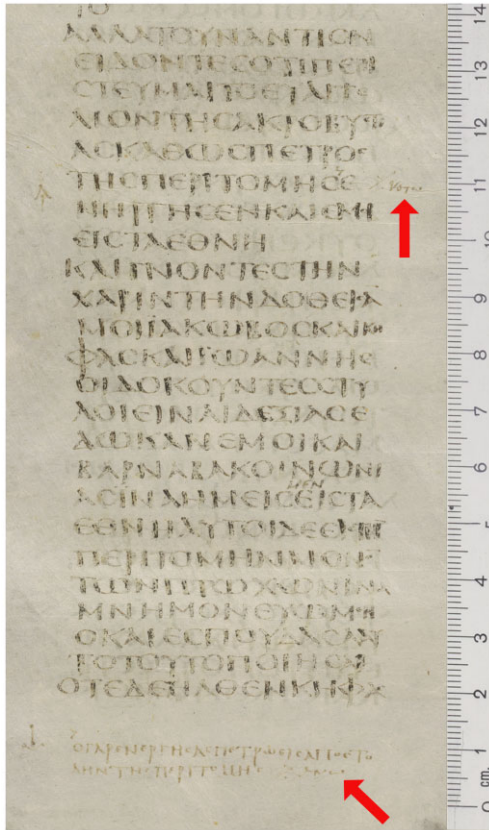 ΑΛΛΑΤΟΥΝΑΝΤΙΟΝ
ΕΙΔΟΝΤΕϹΟΤΙΠΕΠΙ
ϹΤΕΥΜΑΙΤΟΕΥΑΓΓΕ
ΛΙΟΝΤΗϹΑΚΡΟΒΥϹΤΙ
ΑϹΚΑΘΩϹΠΕΤΡΟϹ
ΤΗϹΠΕΡΙΤΟΜΗϹΕ
ΝΗΡΓΗϹΕΝΚΑΙΕΜΟΙ
ΕΙϹΤΑΕΘΝΗ
ΚΑΙΓΝΟΝΤΕϹΤΗΝ
ΧΑΡΙΝΤΗΝΔΟΘΕΙϹΑ
ΜΟΙΙΑΚΩΒΟϹΚΑΙΚΗ
ΦΑϹΚΑΙΙΩΑΝΝΗϹ
ΟΙΔΟΚΟΥΝΤΕϹϹΤΥ
ΛΟΙΕΙΝΑΙΔΕΞΙΑϹΕ
ΔΩΚΑΝΕΜΟΙΚΑΙ
ΒΑΡΝΑΒΑΚΟΙΝΩΝΙ
ΜΕΝ
ΑϹΙΝΑΗΜΕΙϹΕΙϹΤΑ
ΕΘΝΗΑΥΤΟΙΔΕΕΙϹΤΗ
ΠΕΡΙΤΟΜΗΝΜΟΝΟ
ΤΩΝΠΤΩΧΩΝΙΝΑ
ΜΝΗΜΟΝΕΥΩΜΕ
ΟΚΑΙΕϹΠΟΥΔΑϹΑ
ΤΟΤΟΥΤΟΠΟΙΗϹΑΙ
ΟΤΕΔΕΗΛΘΕΝΚΗΦΑϹ
14
13
12
11
10
9
8
7
6
5
4
3
2
1
cm.
0